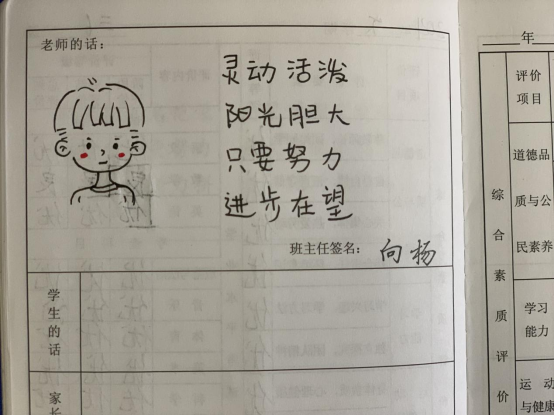 老师的话：
灵动活泼
阳光胆大
只要努力
进步在望
班主任签名：向杨
学生的话
家长
年
评价项目
综合素质评价
道德品质与公民素养
学习能力
运动与健康